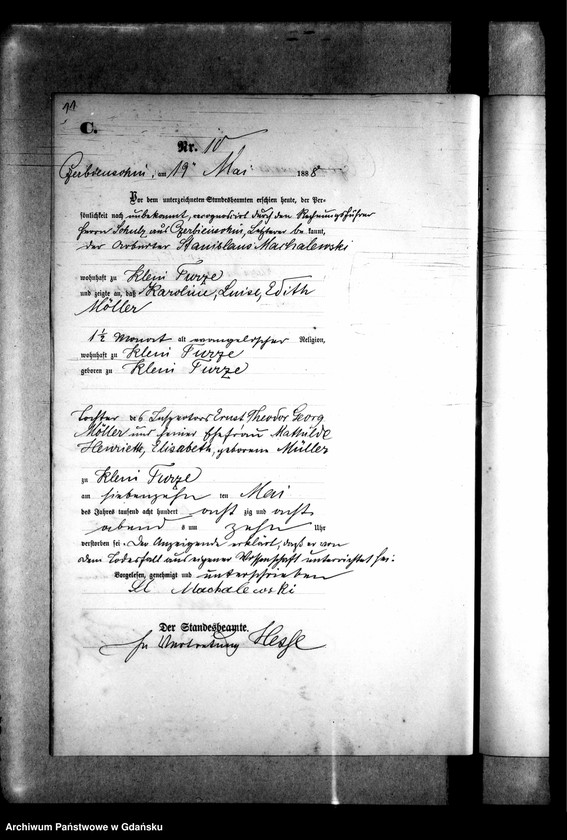 11
C.
Nr. 10
Czerbienschin, am 19ten Mai 1888
Vor dem unterzeichneten Standesbeamten erschien heute, der Per-
sönlichkeit nach unbekannt, recognoscirt durch den Rechnungsführer
Herrn Schulz aus Czerbienschin, Letzterer bekannt,
der Arbeiter Stanislaus Machalewski
wohnhaft zu Klein Turze
und zeigte an, daß Karoline, Luise, Edith
Möller
1½ Monat alt evangelischer Religion,
wohnhaft zu Klein Turze
geboren zu Klein Turze
Tochter des Inspectors Ernst Theodor Georg
Möller und seiner Ehefrau Mathilde
Henriette, Elisabeth, geborene Müller
zu Klein Turze
am siebenzehn ten Mai
des Jahres tausend acht hundert acht zig und acht
abend s um zehn Uhr
verstorben sei. Der Anzeigende erklärt, daß er von
dem Todesfall aus eigener Wissenschaft unterrichtet sei.
Vorgelesen, genehmigt und unterschrieben
St Machalewski
Der Standesbeamte.
In Vertretung Hesse
Archiwum Państwowe w Gdańsku